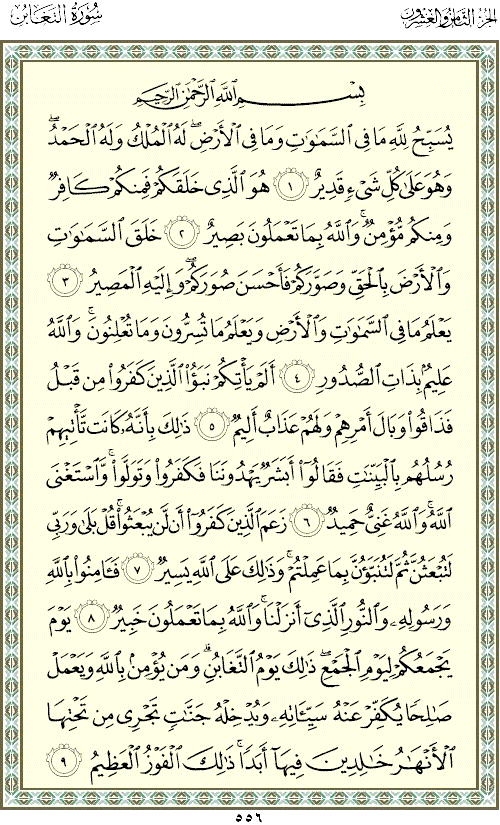 الجزء الثامن والعشرون
سُورَةُ التَّغَابُن
بِسْمِ اللَّهِ الرَّحْمَٰنِ الرَّحِيمِ
يُسَبِّحُ لِلَّهِ مَا فِي السَّمَٰوَٰتِ وَمَا فِي الْأَرْضِۖ لَهُ الْمُلْكُ وَلَهُ الْحَمْدُۖ
وَهُوَ عَلَىٰ كُلِّ شَيْءٍ قَدِيرٌ ١ هُوَ الَّذِي خَلَقَكُمْ فَمِنكُمْ كَافِرٌ
وَمِنكُم مُّؤْمِنٌۚ وَاللَّهُ بِمَا تَعْمَلُونَ بَصِيرٌ ٢ خَلَقَ السَّمَٰوَٰتِ
وَالْأَرْضَ بِالْحَقِّ وَصَوَّرَكُمْ فَأَحْسَنَ صُوَرَكُمْۖ وَإِلَيْهِ الْمَصِيرُ ٣
يَعْلَمُ مَا فِي السَّمَٰوَٰتِ وَالْأَرْضِ وَيَعْلَمُ مَا تُسِرُّونَ وَمَا تُعْلِنُونَۚ وَاللَّهُ
عَلِيمٌۢ بِذَاتِ الصُّدُورِ ٤ أَلَمْ يَأْتِكُمْ نَبَؤُا۟ الَّذِينَ كَفَرُوا۟ مِن قَبْلُ
فَذَاقُوا۟ وَبَالَ أَمْرِهِمْ وَلَهُمْ عَذَابٌ أَلِيمٌ ٥ ذَٰلِكَ بِأَنَّهُۥ كَانَت تَّأْتِيهِمْ
رُسُلُهُم بِالْبَيِّنَٰتِ فَقَالُوٓا۟ أَبَشَرٌ يَهْدُونَنَا فَكَفَرُوا۟ وَتَوَلَّوا۟ۚ وَّاسْتَغْنَى
اللَّهُۚ وَاللَّهُ غَنِيٌّ حَمِيدٌ ٦ زَعَمَ الَّذِينَ كَفَرُوٓا۟ أَن لَّن يُبْعَثُوا۟ۚ قُلْ بَلَىٰ وَرَبِّي
لَتُبْعَثُنَّ ثُمَّ لَتُنَبَّؤُنَّ بِمَا عَمِلْتُمْۚ وَذَٰلِكَ عَلَى اللَّهِ يَسِيرٌ ٧ فَـَٔامِنُوا۟ بِاللَّهِ
وَرَسُولِهِۦ وَالنُّورِ الَّذِيٓ أَنزَلْنَاۚ وَاللَّهُ بِمَا تَعْمَلُونَ خَبِيرٌ ٨ يَوْمَ
يَجْمَعُكُمْ لِيَوْمِ الْجَمْعِۖ ذَٰلِكَ يَوْمُ التَّغَابُنِۗ وَمَن يُؤْمِنۢ بِاللَّهِ وَيَعْمَلْ
صَٰلِحًا يُكَفِّرْ عَنْهُ سَيِّـَٔاتِهِۦ وَيُدْخِلْهُ جَنَّٰتٍ تَجْرِي مِن تَحْتِهَا
الْأَنْهَٰرُ خَٰلِدِينَ فِيهَآ أَبَدًاۚ ذَٰلِكَ الْفَوْزُ الْعَظِيمُ ٩
٥٥٦